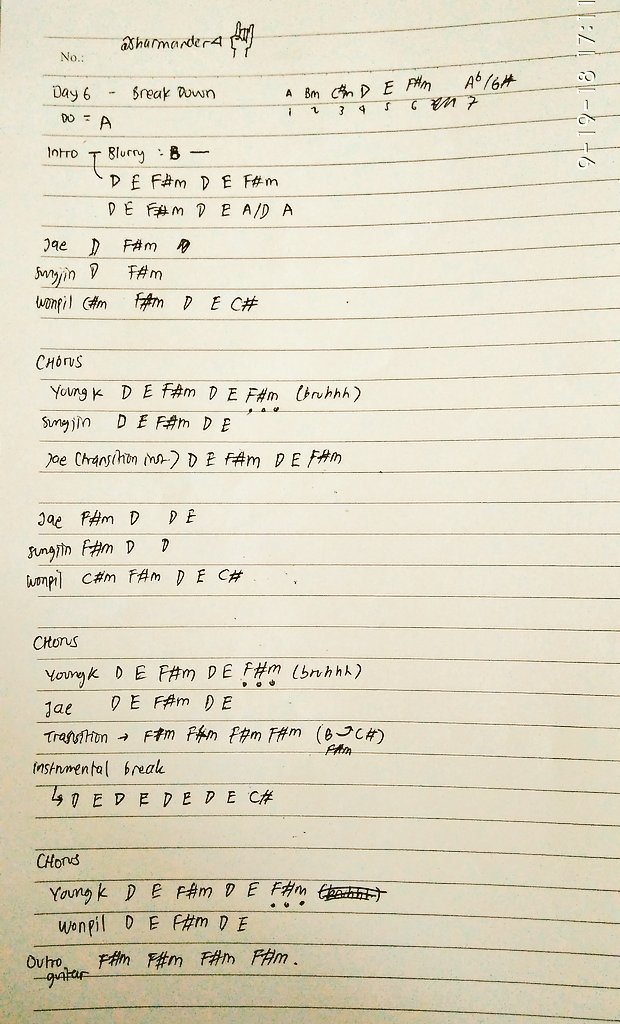 @sharmander4
No.:
Day 6 - Break Down A Bm C#m D E F#m Ab/G#
DO = A 1 2 3 4 5 6 7
Intro Blurry : B —
D E F#m D E F#m
D E F#m D E A/D A
Jae D F#m
Sungjin D F#m
Wonpil C#m F#m D E C#
CHORUS
Youngk D E F#m D E F#m (bruhhh)
Sungjin D E F#m D E
Jae (transition inst) D E F#m D E F#m
Jae F#m D D E
Sungjin F#m D D
Wonpil C#m F#m D E C#
CHORUS
Youngk D E F#m D E F#m (bruhhh)
Jae D E F#m D E
Transition → F#m F#m F#m F#m (B C#)
F#m
Instrumental break
↳ D E D E D E D E C#
CHORUS
Youngk D E F#m D E F#m (bruhhh)
Wonpil D E F#m D E
Outro F#m F#m F#m F#m.
guitar
9-19-18 17:11